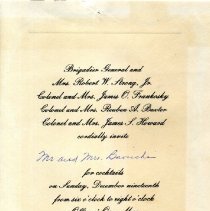 Brigadier General and
Mrs. Robert W. Strong, Jr.
Colonel and Mrs. James O. Frankosky
Colonel and Mrs. Reuben A. Baxter
Colonel and Mrs. James S. Howard
cordially invite
Mr and Mrs.
for cocktails
on Sunday, December nineteenth
from six o'clock to eight o'clock